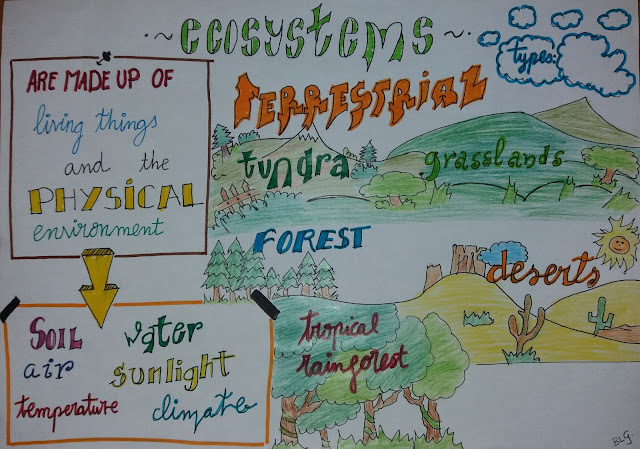 ~ ecosystems ~
types:
ARE MADE UP OF
living things
and the
PHYSICAL
environment
SOIL water
air sunlight
temperature climate
TERRESTRIAL
tundra grasslands
FOREST
deserts
tropical
rainforest
BLG.